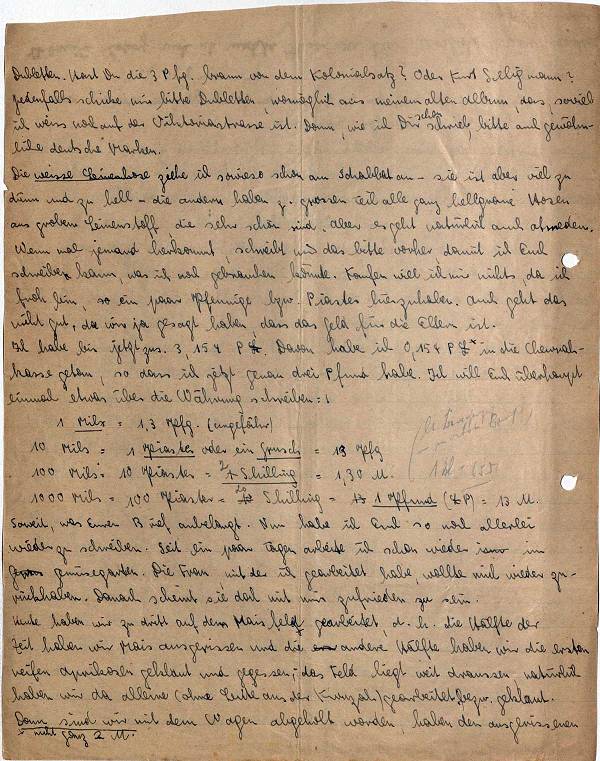 Dubletten. Hast Du die 3 Pfg. braun von dem Kolonialsatz? Oder Kurt Seligmann?
Jedenfalls schicke mir bitte Dubletten, womöglich aus meinem alten Album, das, soviel
ich weiss noch auf der Viktoriastrasse ist. Dann, wie ich Dir schon schrieb, bitte auch gewöhn-
liche deutsche Marken.
Die weisse Leinenhose ziehe ich sowieso schon am Schabbat an - sie ist aber viel zu
dünn und zu hell - die andern haben z. grossen Teil alle ganz hellgraue Hosen
aus grobem Leinenstoff die sehr schön sind. Aber es geht natürlich auch
Wenn mal jemand herkommt, schreibt mir das bitte vorher, damit ich Euch
schreiben kann, was ich noch gebrauchen könnte. Kaufen will ich mir nichts, da ich
froh bin, so ein paar Pfennige bzw. Piaster hierzuhaben. Auch geht das
nicht gut, da wir ja gesagt haben, dass das Geld für die Eltern ist.
Ich habe bis jetzt zus. 3,154 P₤. Davon habe ich 0,154 P₤* in die Chewrah-
kasse getan, so dass ich jetzt genau drei Pfund habe. Ich will Euch überhaupt
einmal etwas über die Währung schreiben:
1 Mils = 1,3 Pfg. (ungefähr)
10 Mils = 1 Piaster oder ein Grusch = 13 Pfg
100 Mils = 10 Piaster = 2 Schilling = 1,30 M.
1000 Mils = 100 Piaster = 20 Schilling = 1 Pfund (₤P) = 13 M.
Soweit, was Euren Brief anbelangt. Nun habe ich Euch so noch allerlei
wieder zu schreiben. Seit ein paar Tagen arbeite ich schon wieder im
Gemüsegarten. Die Frau, mit der ich gearbeitet habe, wollte mich wieder zu-
rückhaben. Danach scheint sie doch mit mir zufrieden zu sein.
Heute haben wir zu dritt auf dem Maisfeld gearbeitet, d.h. die Hälfte der
Zeit haben wir Mais ausgerissen und die andere Hälfte haben wir die ersten
reifen Aprikosen geklaut und gegessen; das Feld liegt weit draussen, natürlich
haben wir da alleine (ohne Leute aus der Kwuzah) gearbeitet, bezw. geklaut.
Dann sind wir mit dem Wagen abgeholt worden, haben den ausgerissenen
* nicht ganz 2 M.